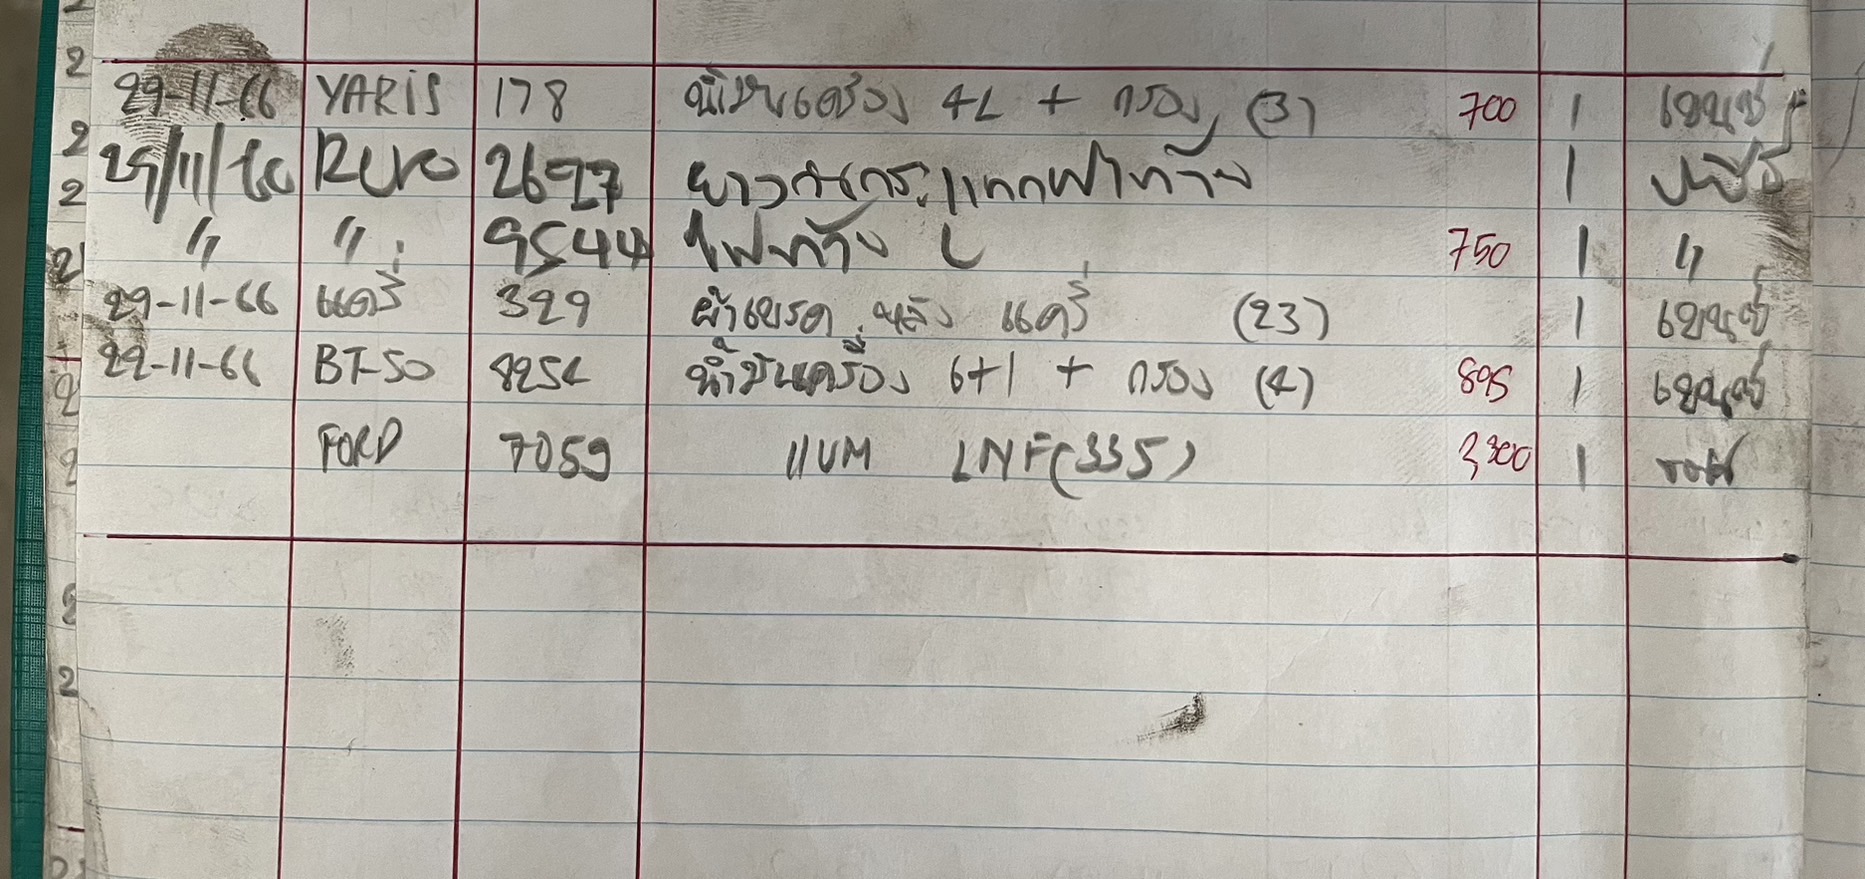 29-11-66 YARIS 178 น้ำมันเครื่อง 4L + กรอง (3) 700 1 เยนเร่
29/11/66 Revo 2697 ยางกันกระแทกฝาท้าย 1
〃 〃 9544 ไฟท้าย L 750 1 〃
29-11-66 แครี่ 329 ผ้าเบรค หลัง แครี่ (23) 1
22-11-66 BT-50 8254 น้ำมันเครื่อง 6+1 + กรอง (4) 895 1
FORD 7059 แบต LNF(335) 3,300 1